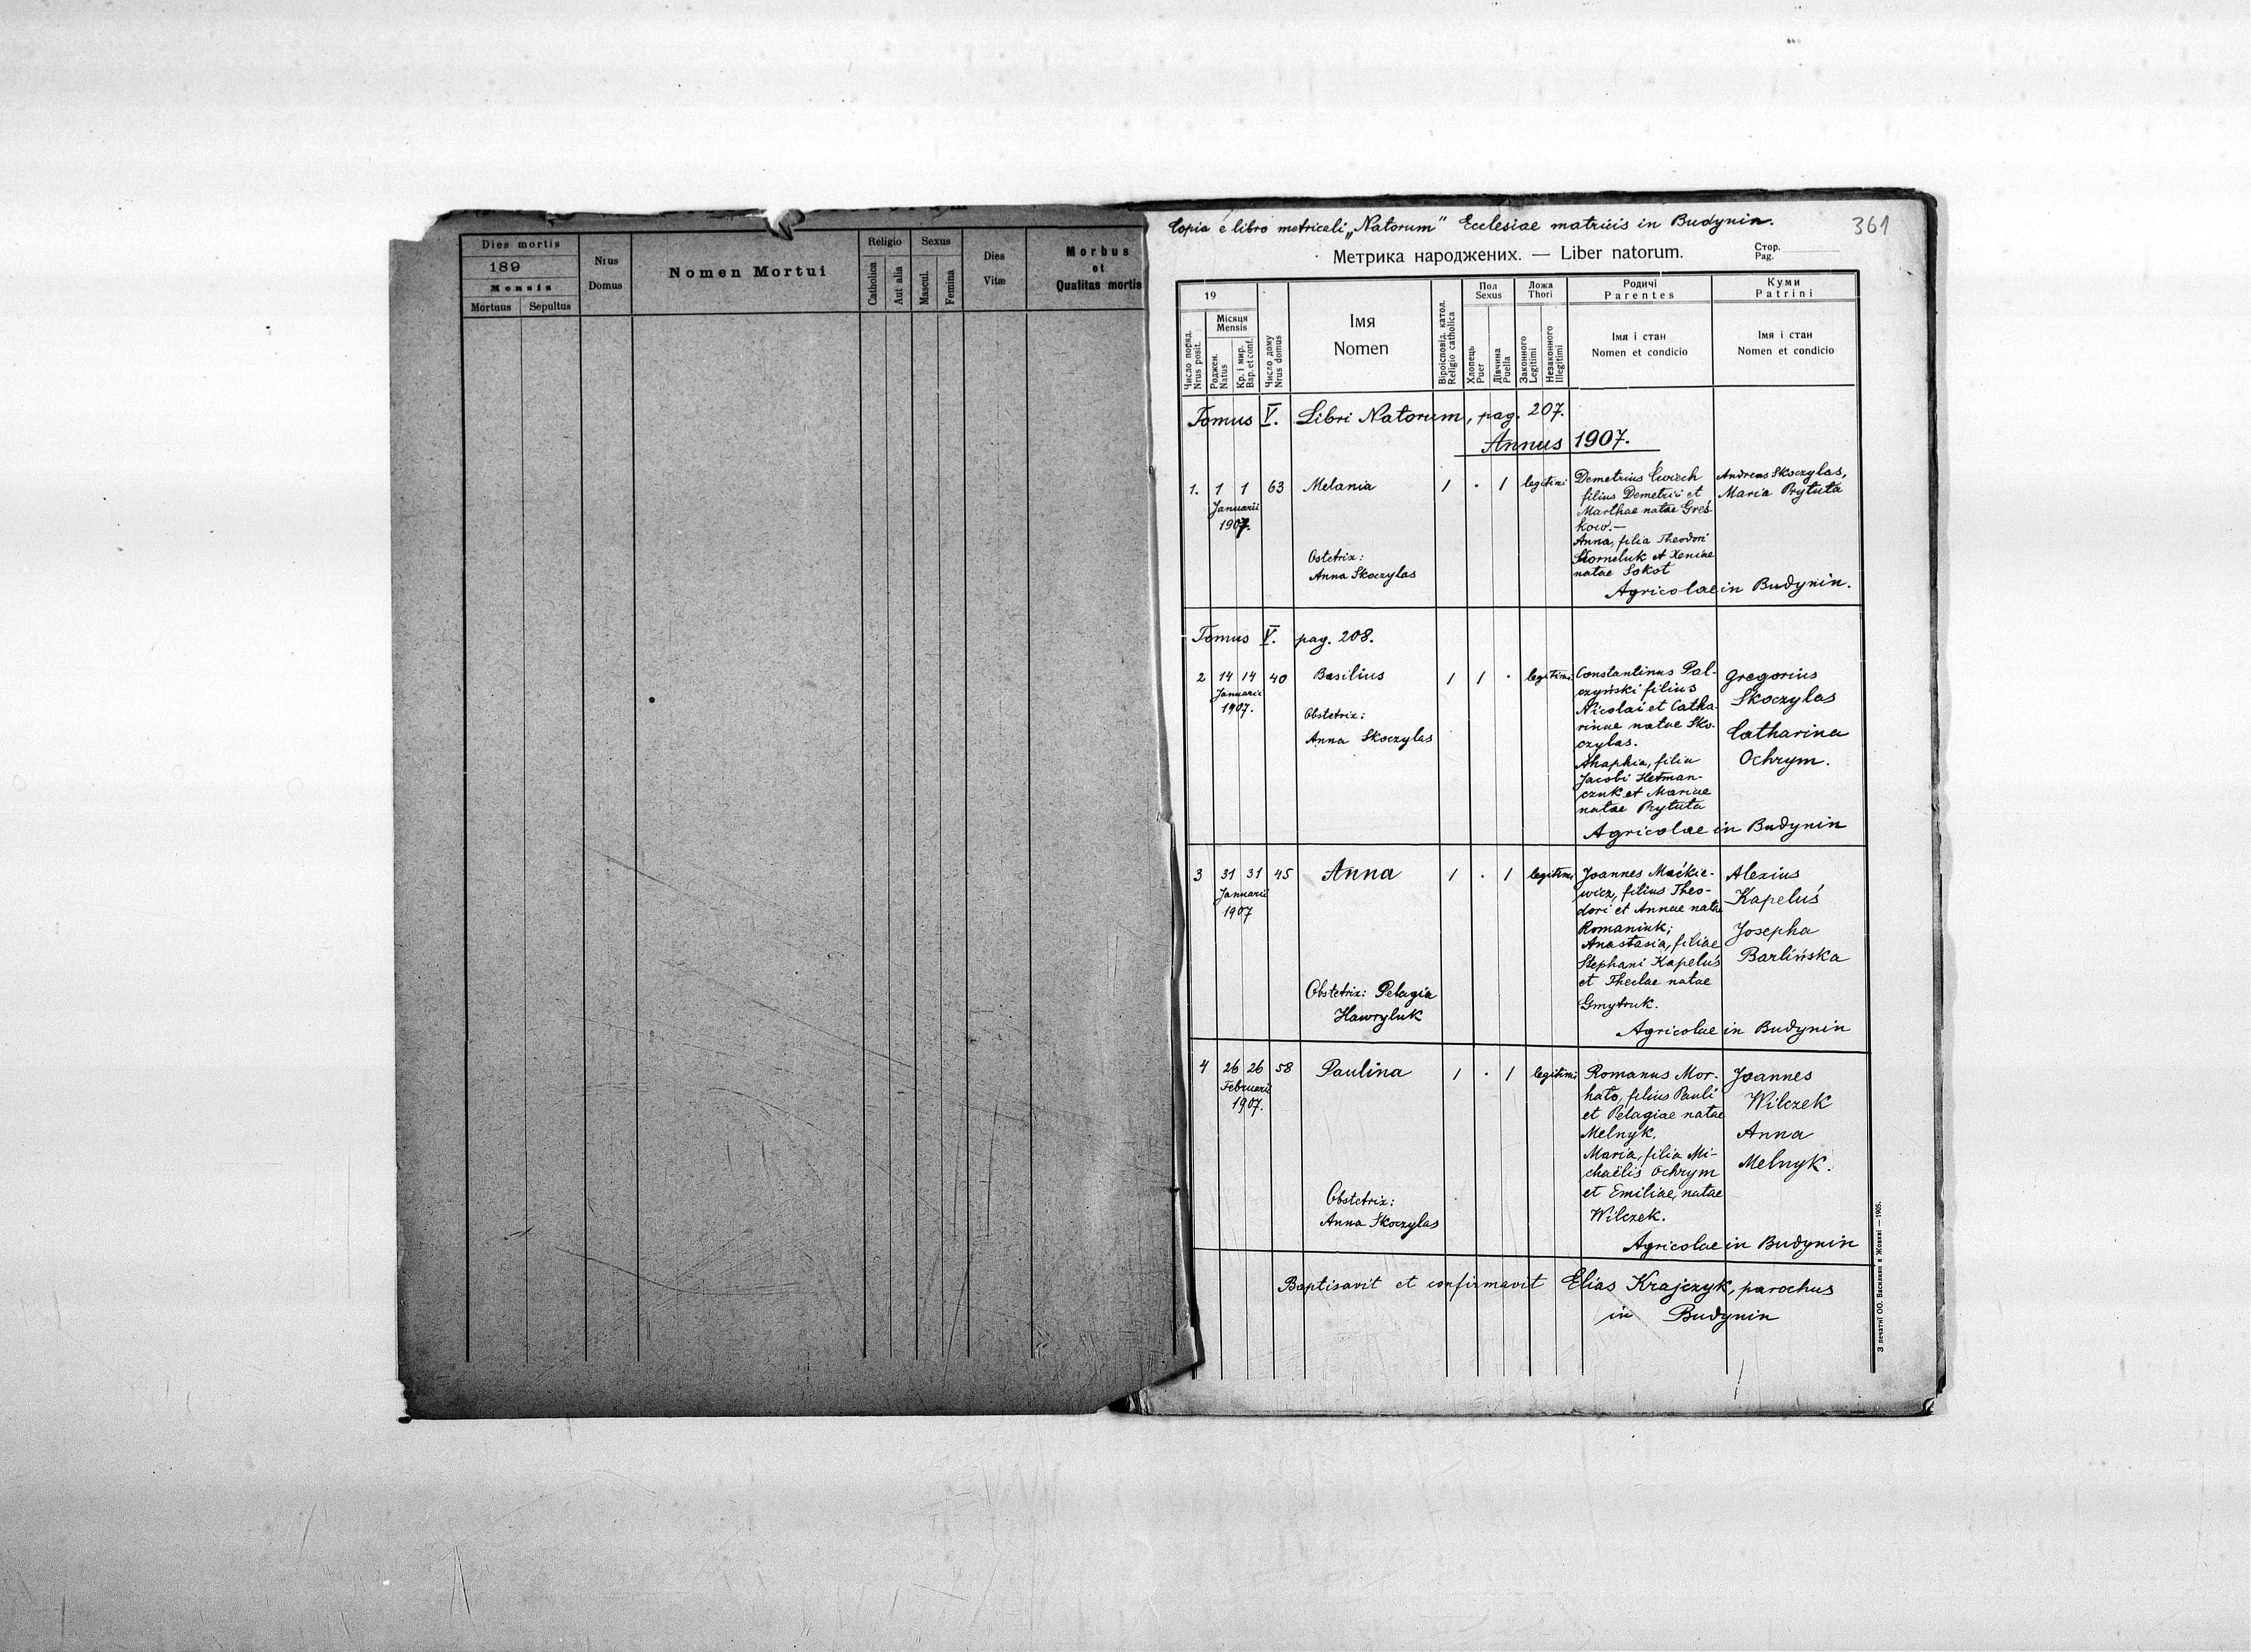 Dies mortis
189
Mensis
Mortuus
Sepultus
Nrus
Domus
Nomen Mortui
Religio
Catholica
Aut alia
Sexus
Mascul.
Femina
Dies
Vitæ
Morbus
et
Qualitas mortis
Copia e libro metricali „Natorum" Ecclesiae matricis in Budynin.
361
Метрика народжених. — Liber natorum.
Стор.
Pag.
19
Число поряд.
Nrus posit.
Місяця
Mensis
Роджен.
Natus
Кр. і мир.
Bap. et conf.
Число дому
Nrus domus
Імя
Nomen
Віроісповід. катол.
Religio catholica
Пол
Sexus
Хлопець
Puer
Дівчина
Puella
Ложа
Thori
Законного
Legitimi
Незаконного
Illegitimi
Родичі
Parentes
Імя і стан
Nomen et condicio
Куми
Patrini
Імя і стан
Nomen et condicio
Tomus V. Libri Natorum, pag. 207.
Annus 1907.
1. 1 1 63 Melania 1 · 1 legitimi
Januarii
1907.
Ostetrix:
Anna Skoczylas
Demetrius Ćwiech
filius Demetrii et
Marthae natae Greś-
kow.—
Anna, filia Theodori
Korneluk et Xeniae
natae Sokot
Andreas Skoczylas,
Maria Prytuta
Agricolae in Budynin.
Tomus V. pag. 208.
2 14 14 40 Basilius 1 1 · legitimi
Januarii
1907.
Obstetrix:
Anna Skoczylas
Constantinus Pal-
czyński filius
Nicolai et Catha-
rinae natae Sko-
czylas.
Ahaphia, filia
Jacobi Hetman-
czuk et Mariae
natae Prytuta
Gregorius
Skoczylas
Catharina
Ochrym.
Agricolae in Budynin
3 31 31 45 Anna 1 · 1 legitimi
Januarii
1907
Obstetrix: Pelagia
Hawryluk
Joannes Maćkie-
wicz, filius Theo-
dori et Annae natae
Romaniuk;
Anastasia, filiae
Stephani Kapeluś
et Theclae natae
Gmytruk.
Alexius
Kapeluś
Josepha
Barlińska
Agricolae in Budynin
4 26 26 58 Paulina 1 · 1 legitimi
Februarii
1907.
Obstetrix:
Anna Skoczylas
Romanus Mor-
hato, filius Pauli
et Pelagiae natae
Melnyk,
Maria, filia Mi-
chaëlis Ochrym
et Emiliae, natae
Wilczek.
Joannes
Wilczek
Anna
Melnyk.
Agricolae in Budynin
Baptisavit et confirmavit Elias Krajczyk, parochus
in Budynin
З печатнї ОО. Василиян в Жовкві — 1905.